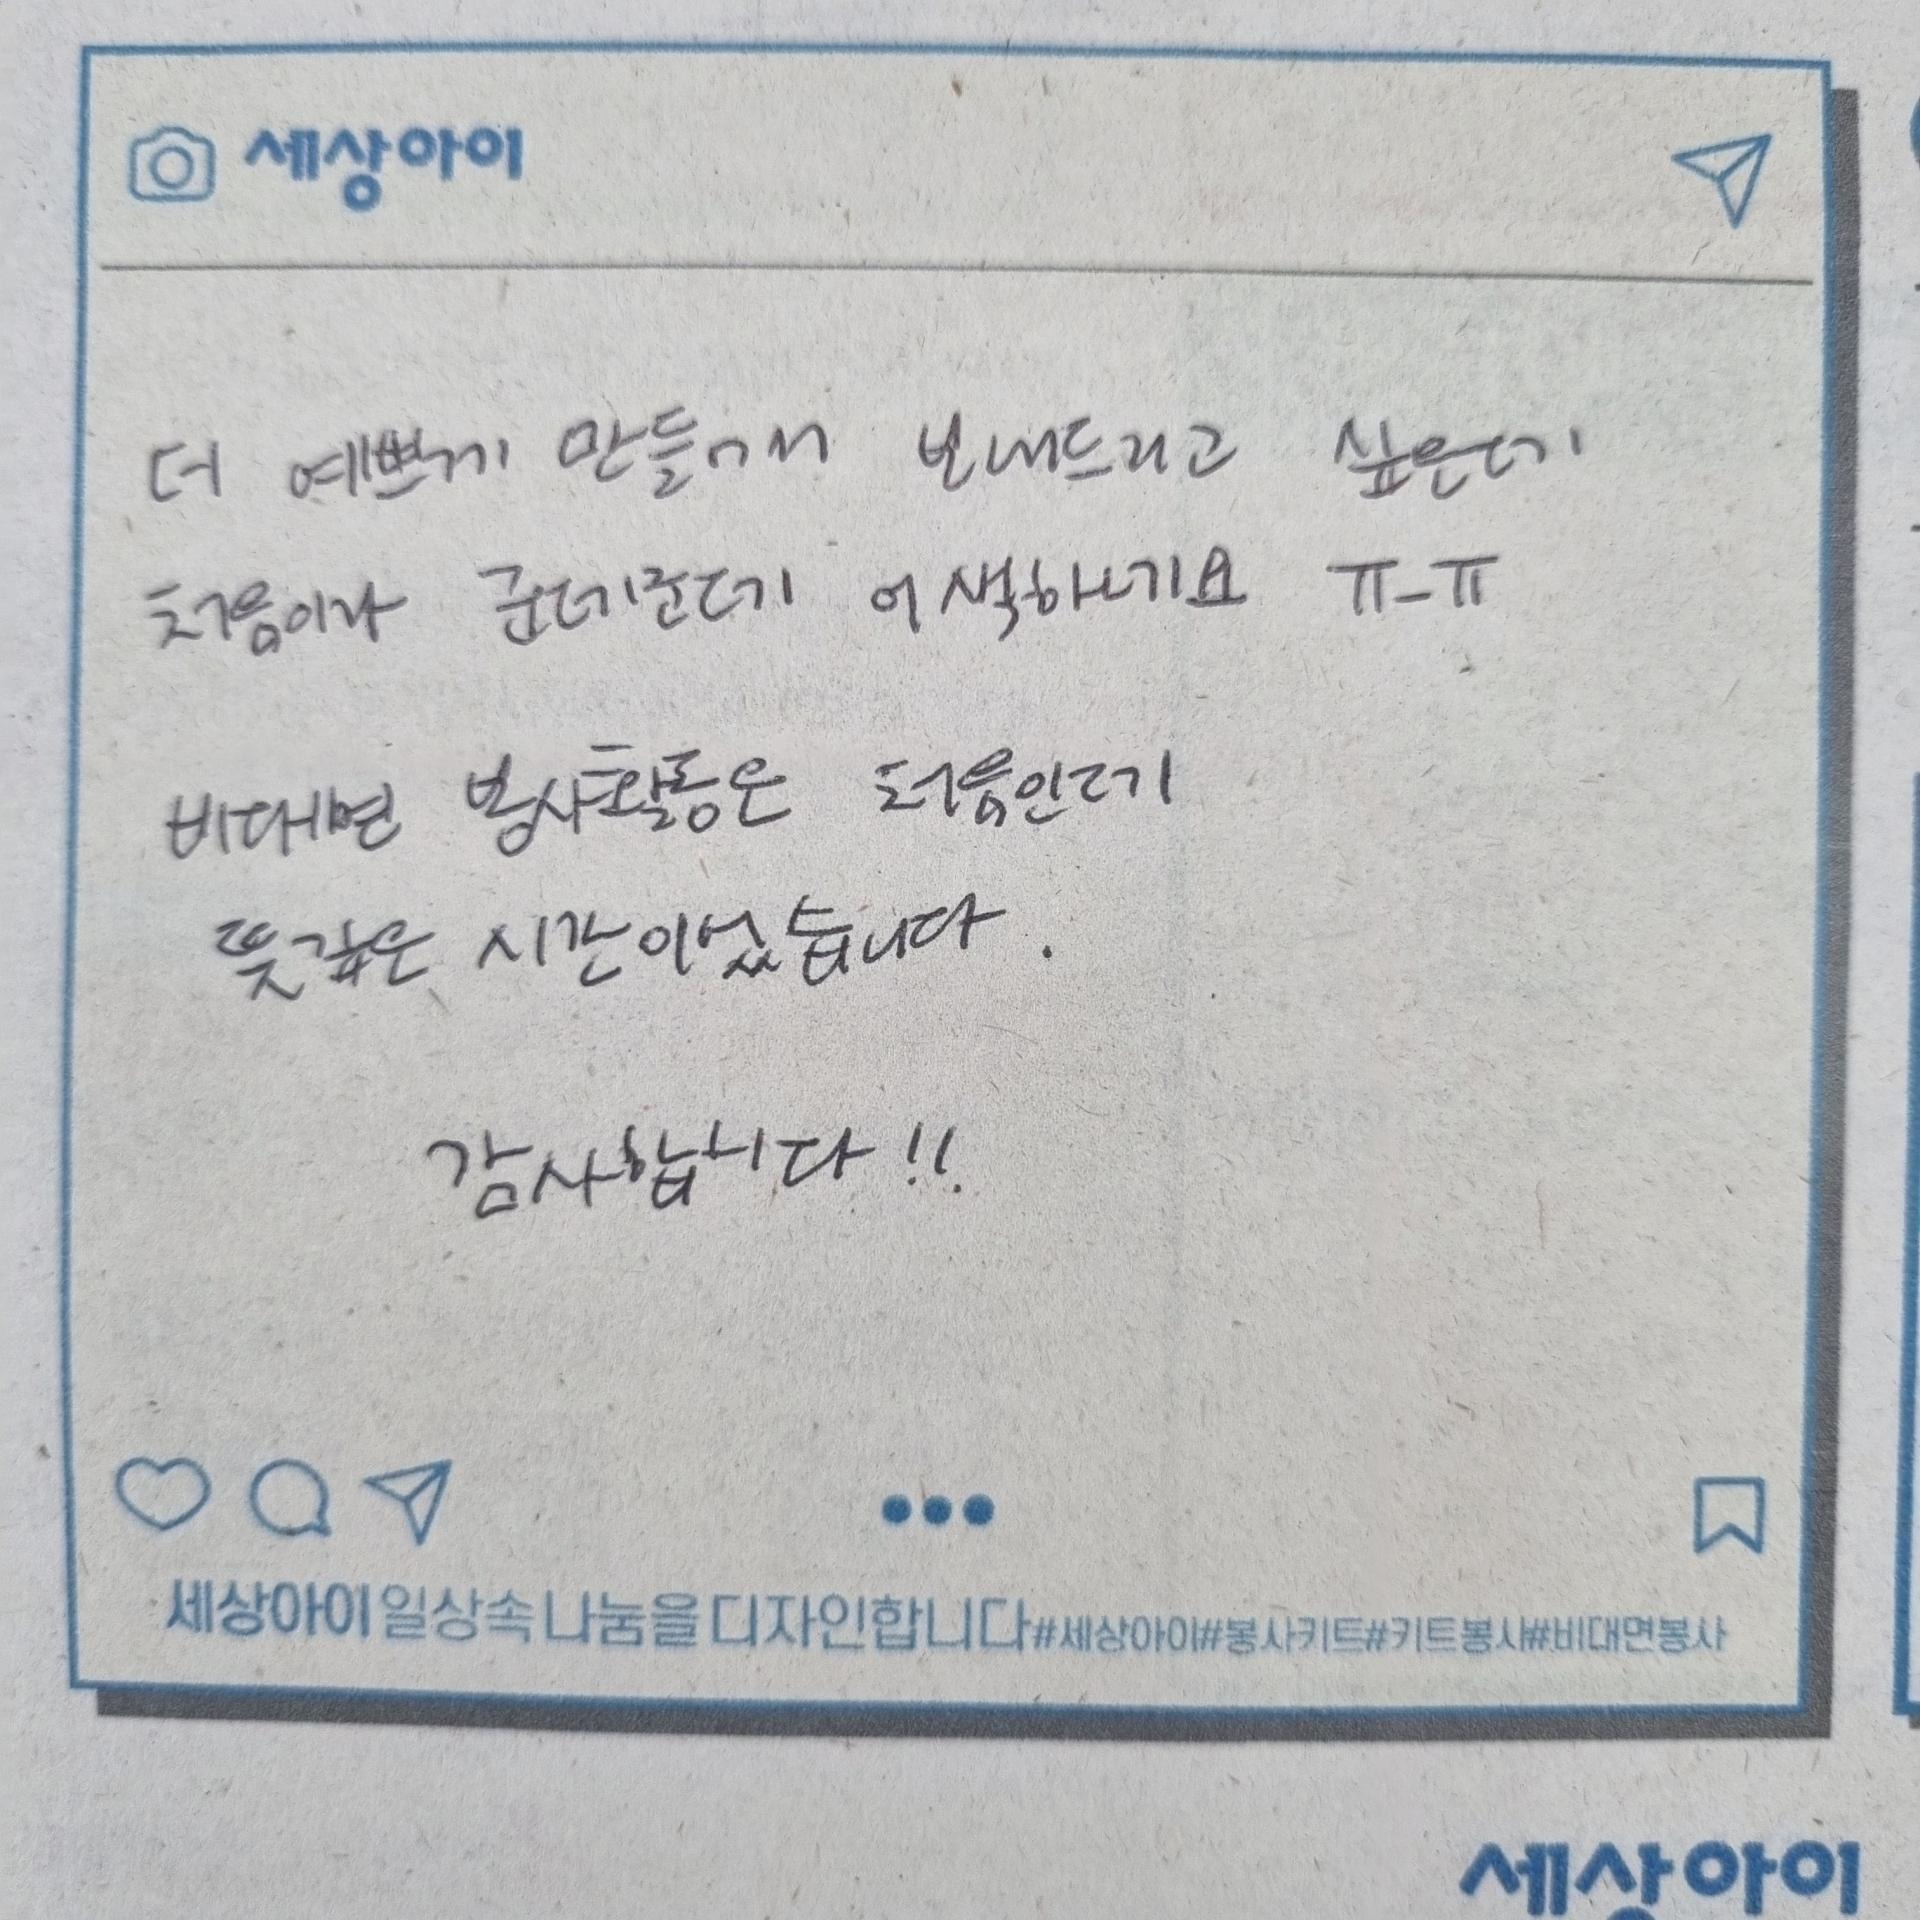 세상아이
더 예쁘게 만들어서 보내드리고 싶은데
처음이라 군데군데 어색하네요 ㅠ-ㅠ
비대면 봉사활동은 처음인데
뜻깊은 시간이었습니다.
감사합니다!!
세상아이 일상 속 나눔을 디자인합니다 #세상아이#봉사키트#키트봉사#비대면봉사
세상아이